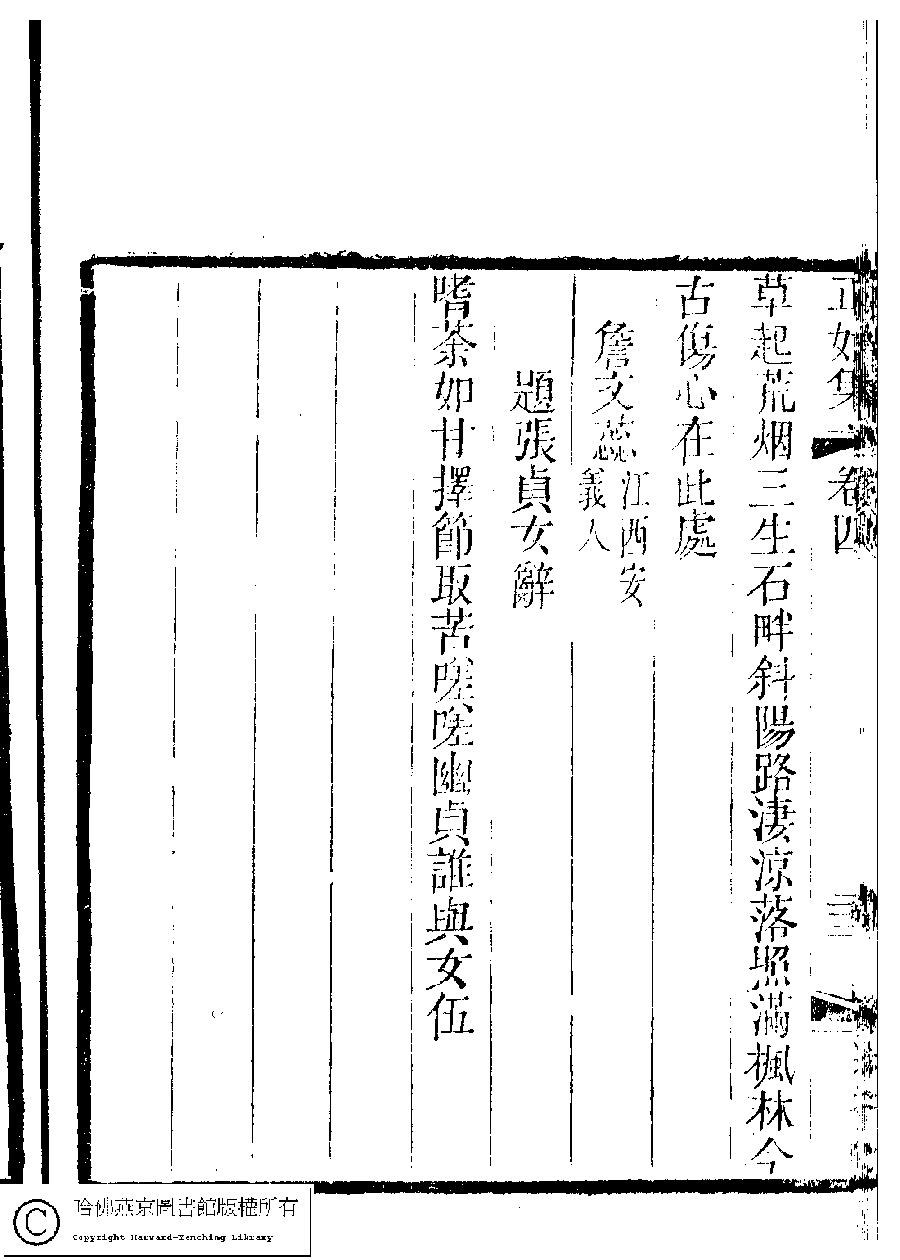 正始集 卷四
草起荒烟三生石畔斜陽路淒涼落照滿楓林今
古傷心在此處
詹文蕊 江西安
義人
題張貞女辭
嗜茶如甘擇節取苦嗟嗟幽貞誰與女伍
© 哈佛燕京圖書館版權所有
Copyright Harvard-Yenching Library